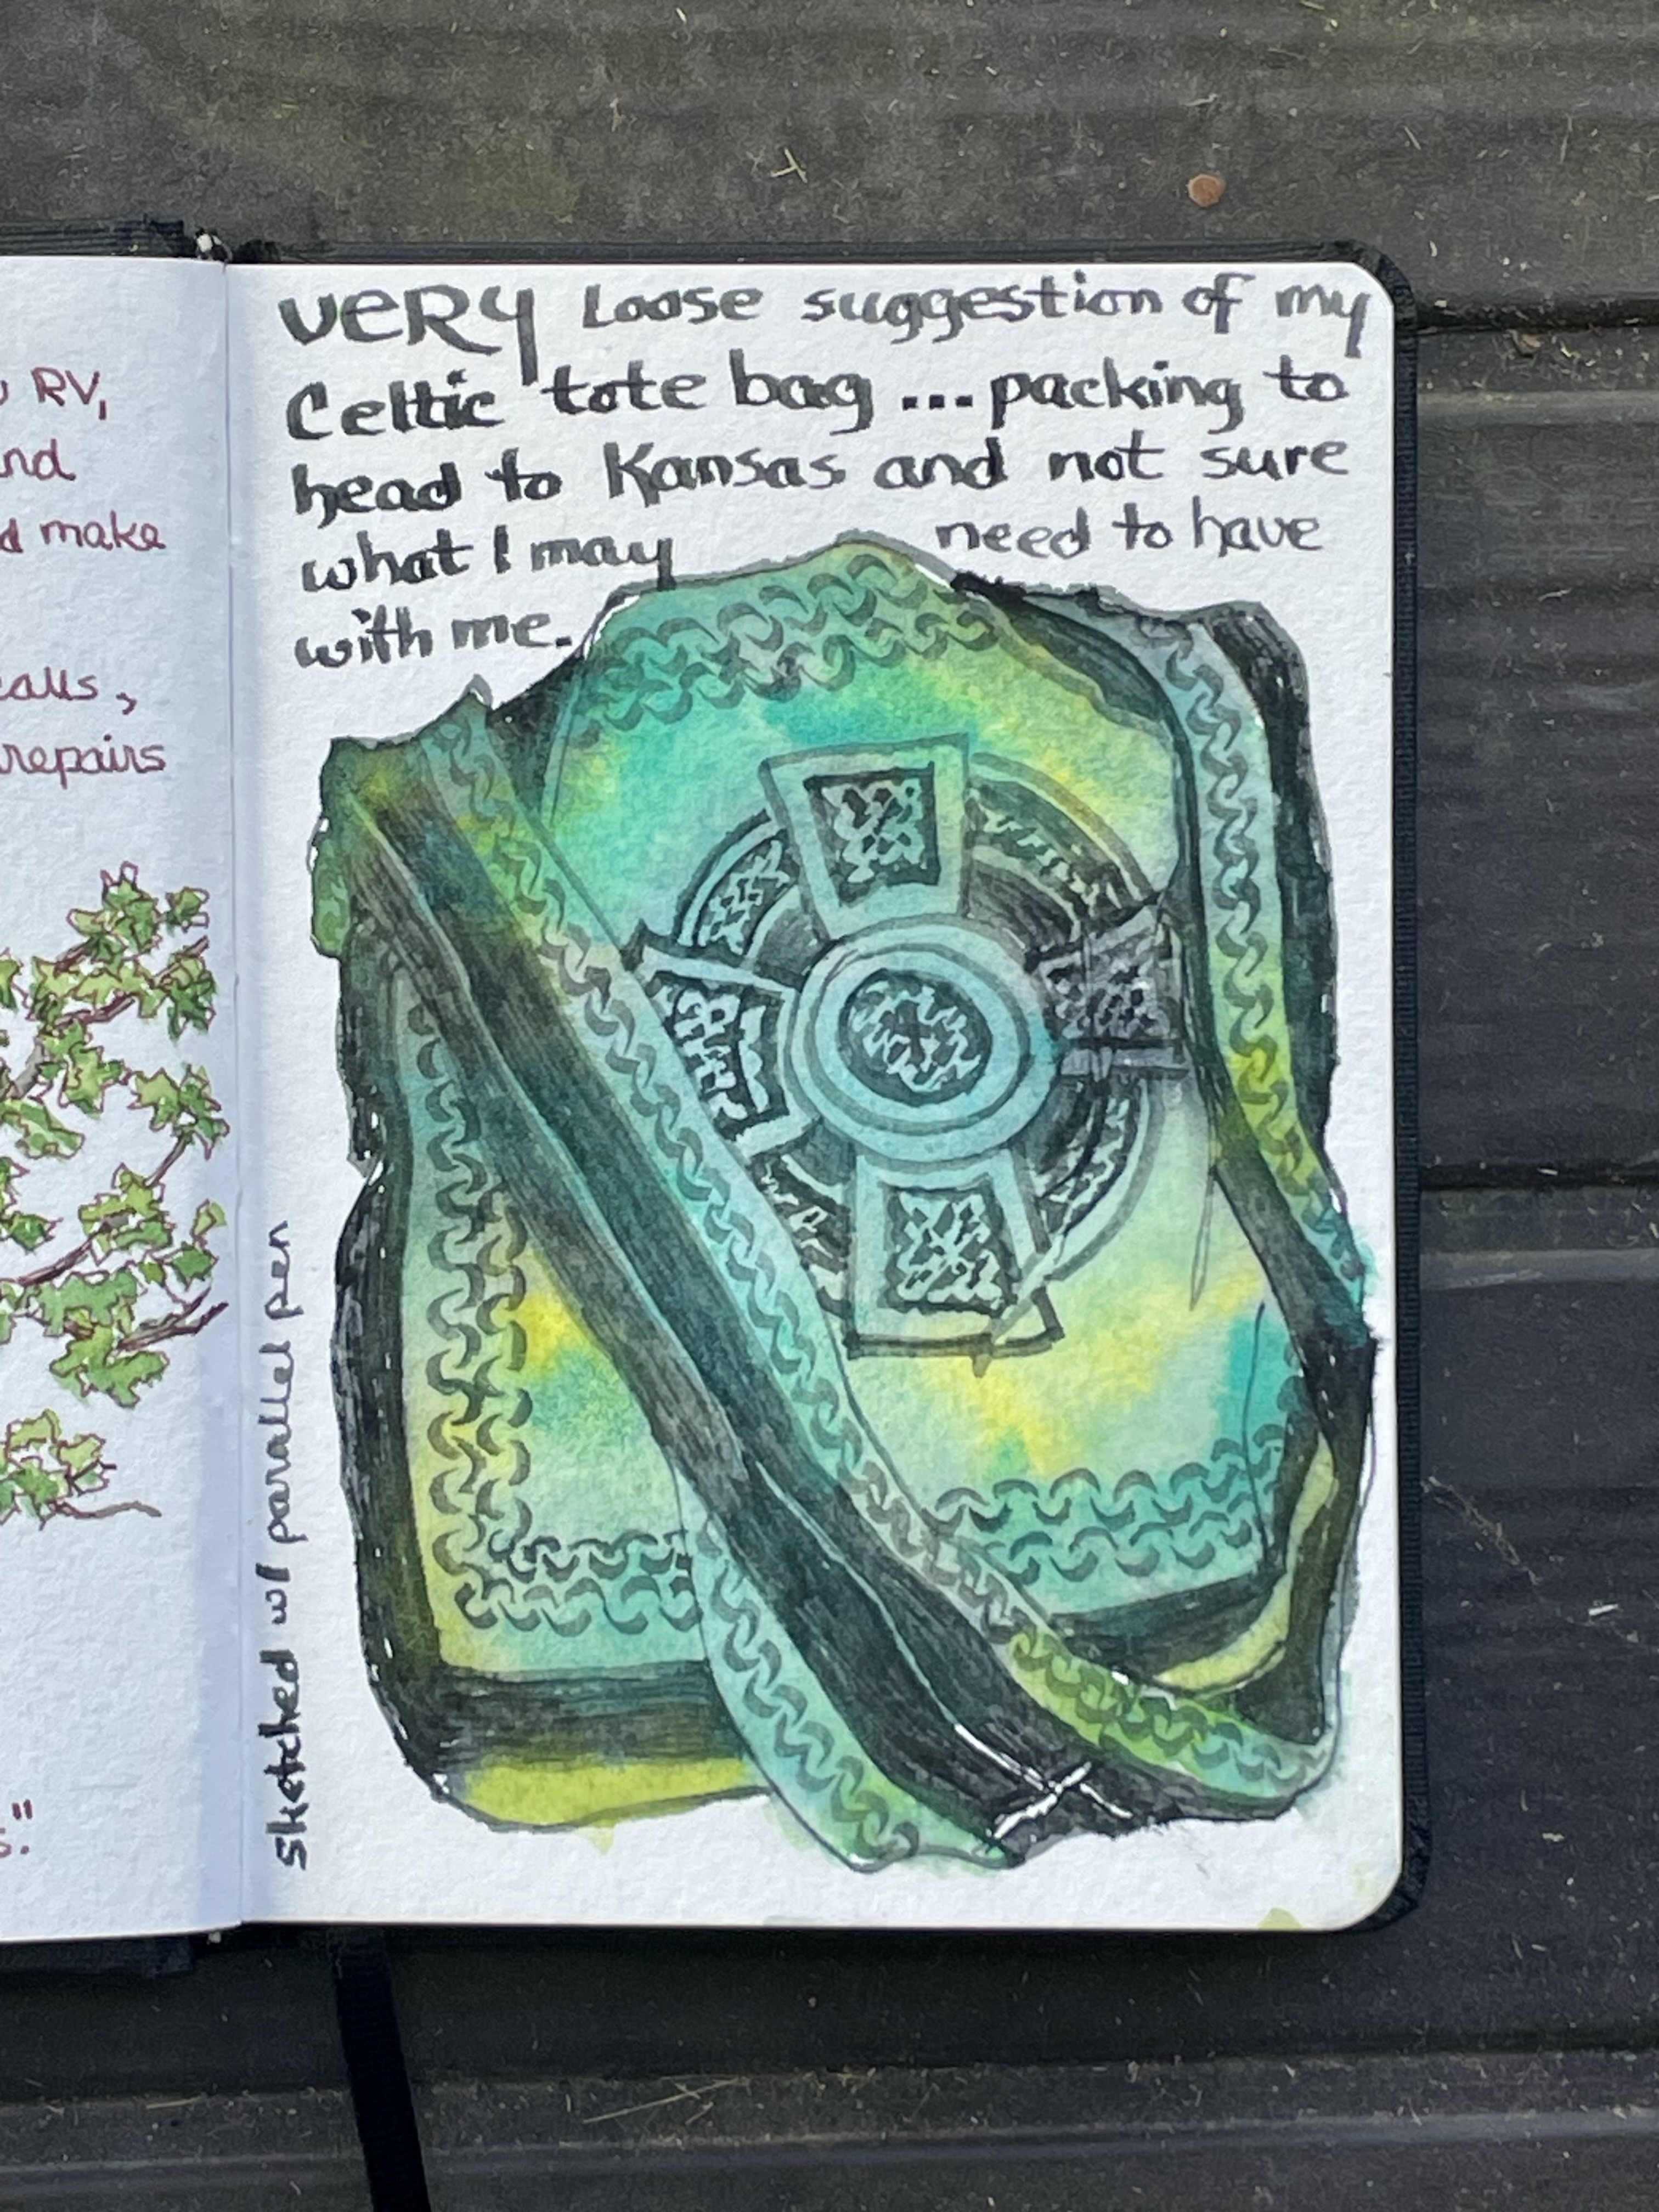 RV,
make
repairs
VERY Loose suggestion of my
Celtic tote bag ... packing to
head to Kansas and not sure
what I may need to have
with me.
sketched w/ parallel pen